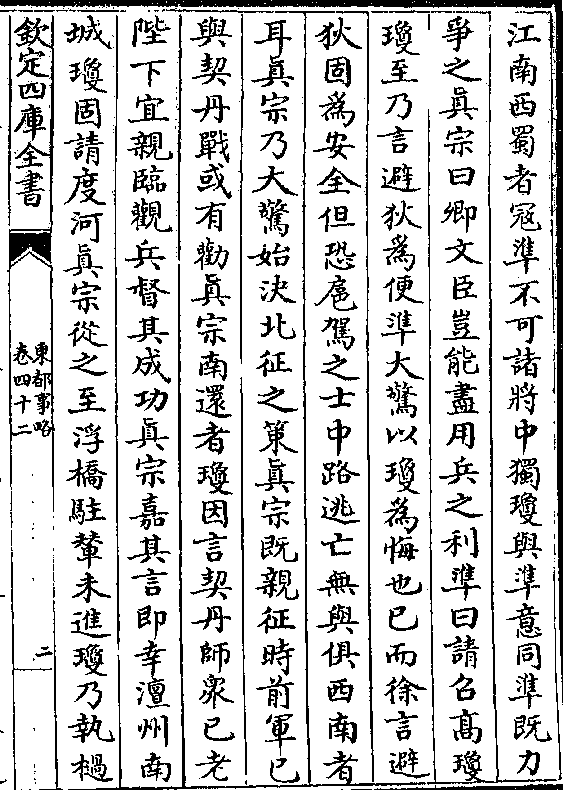 江南西蜀者冦準不可諸將中獨瓊與準意同準既力
爭之眞宗曰卿文臣豈能盡用兵之利準曰請召髙瓊
瓊至乃言避狄爲便準大驚以瓊爲悔也已而徐言避
狄固爲安全但恐扈駕之士中路逃亡無與俱西南者
耳眞宗乃大驚始決北征之策眞宗既親征時前軍已
與契丹戰或有勸眞宗南還者瓊因言契丹師衆已老
陛下宜親臨觀兵督其成功眞宗嘉其言即幸澶州南
城瓊固請度河眞宗從之至浮橋駐輦未進瓊乃執檛
欽定四庫全書
東都事略
卷四十二
二